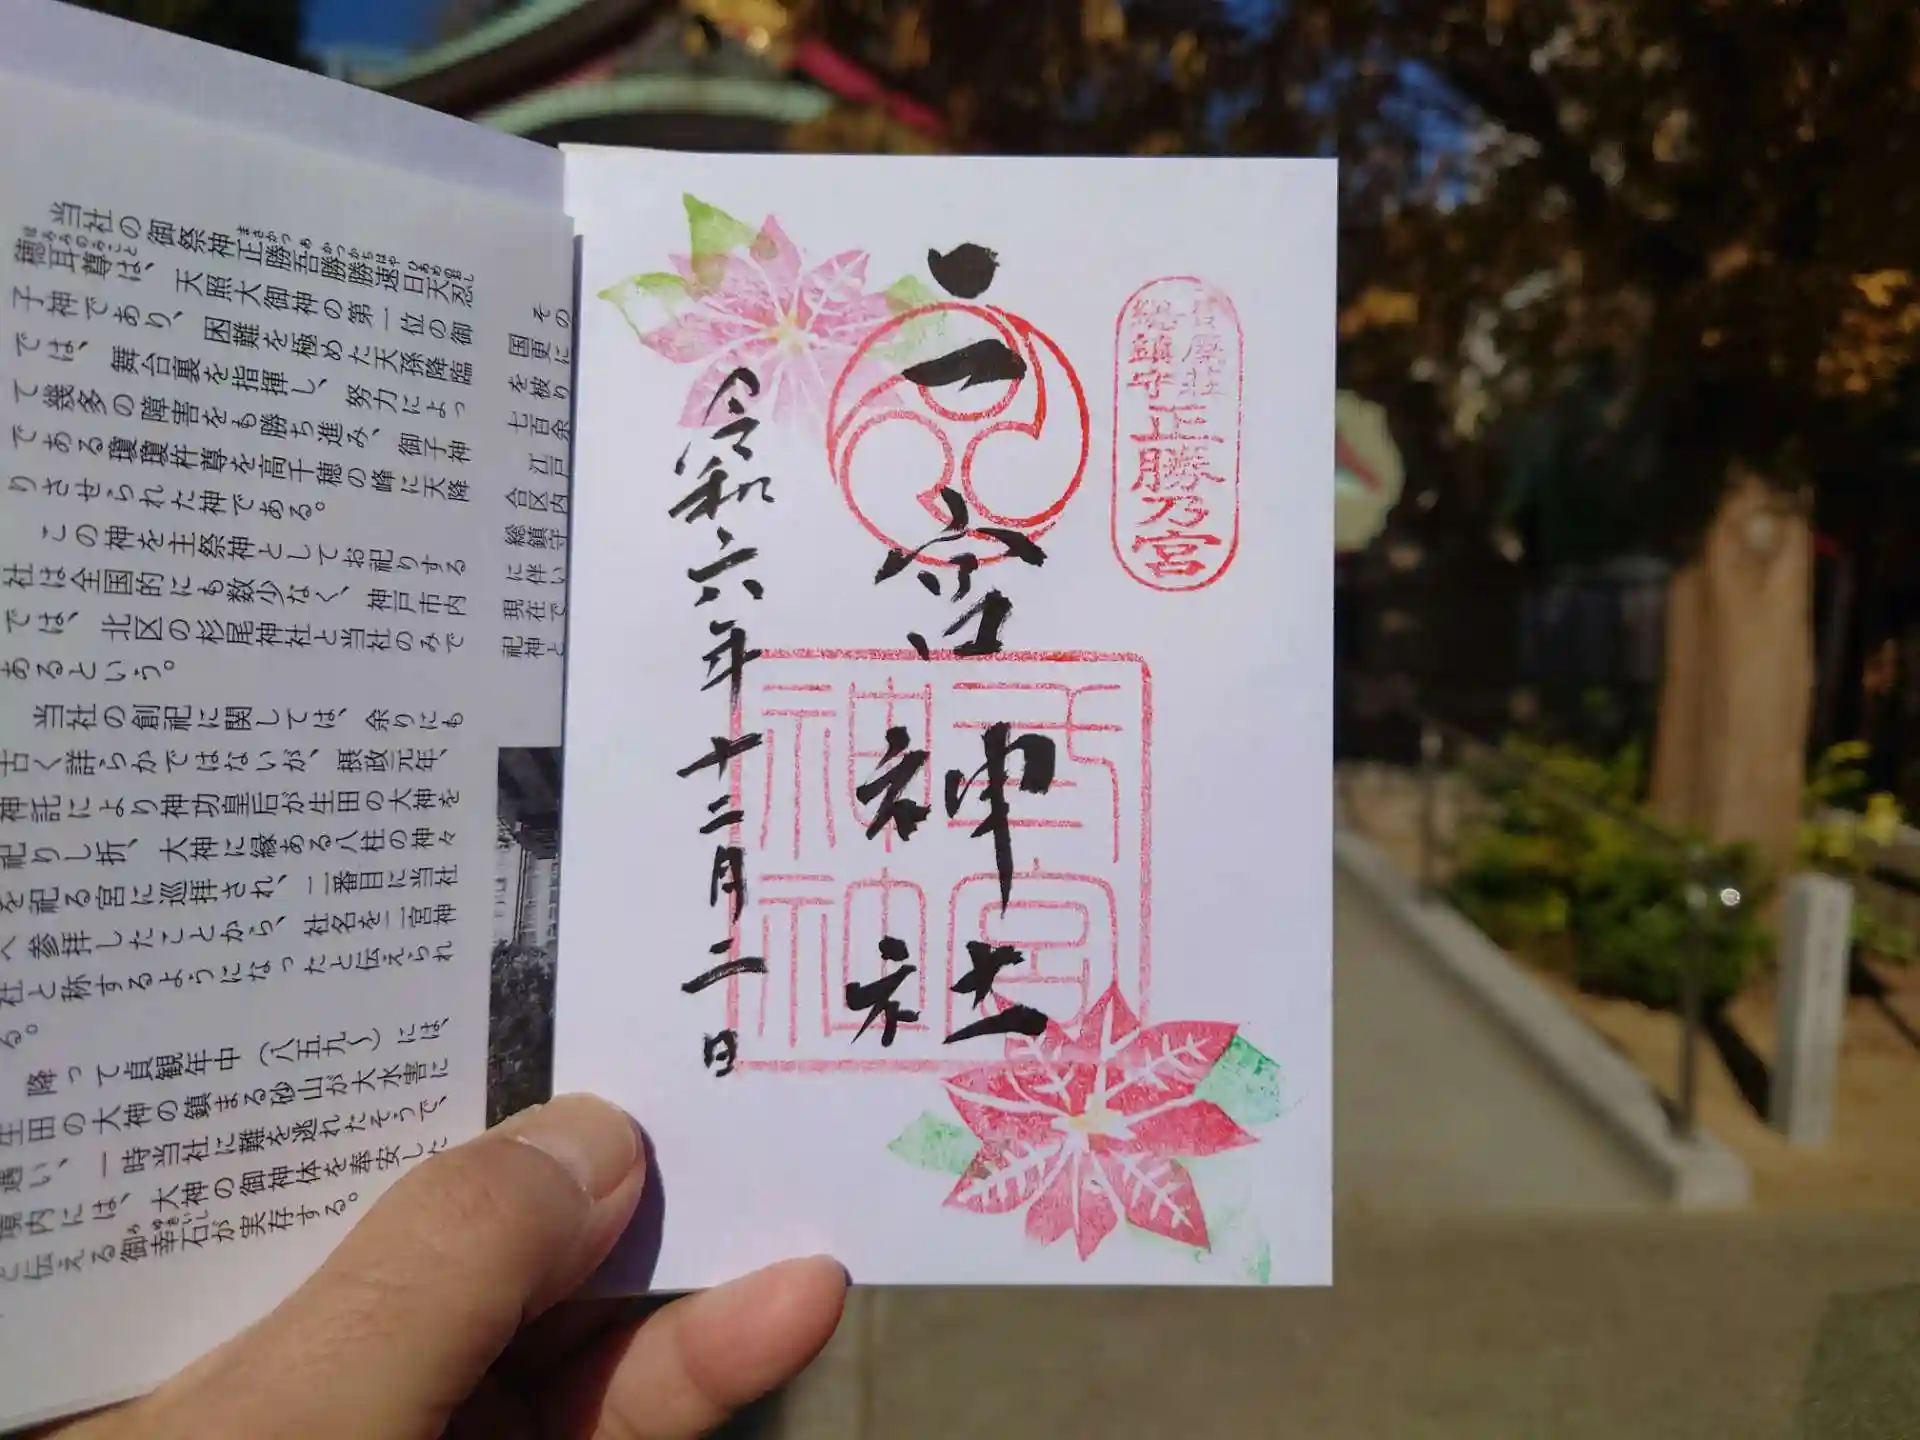 当社の御祭神正勝吾勝勝速日天忍
穂耳尊は、天照大御神の第一位の御
子神であり、困難を極めた天孫降臨
では、舞台裏を指揮し、努力によっ
て幾多の障害をも勝ち進み、御子神
である瓊瓊杵尊を高千穂の峰に天降
りさせられた神である。
この神を主祭神としてお祀りする
社は全国的にも数少なく、神戸市内
では、北区の杉尾神社と当社のみで
あるという。
当社の創祀に関しては、余りにも
古く詳らかではないが、摂政元年、
神託により神功皇后が生田の大神を
祀りし折、大神に縁ある八柱の神々
を祀る宮に巡拝され、二番目に当社
へ参拝したことから、社名を二宮神
社と称するようになったと伝えられ
る。
降って貞観年中（八五九〜）には、
生田の大神の鎮まる砂山が大水害に
遇い、一時当社に難を逃れたそうで、
境内には、大神の御神体を奉安した
と伝える御幸石が実存する。
その
国更に
を被り
七百余
江戸
合区内
総鎮守
に伴い
現在で
祀神と
葺屋荘
總鎮守
正勝乃宮
二宮神社
令和六年十二月二日